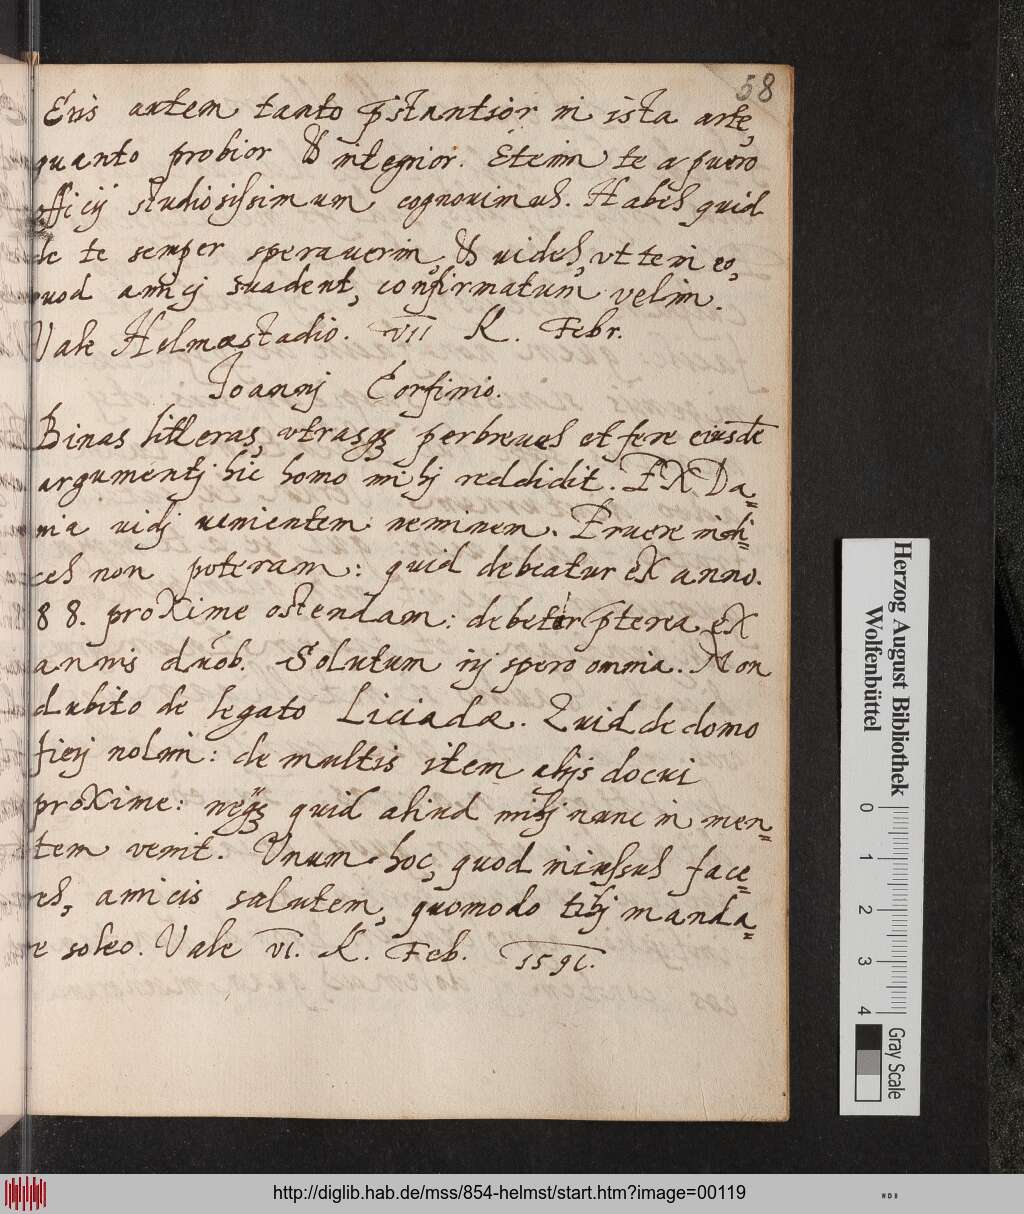 58
Eris autem tanto p̄stantior in ista arte,
quanto probior & integrior. Etenim te a puero
officij studiosissimum cognouimus. Habes quid
de te semper sperauerim, & uides, vt te in eo,
quod amicj suadent, confirmatum velim.
Vale Helmæstadio. VII K. Febr.
Joannj Corfinio.
Binas litteras, vtrasqꝫ perbreues et fere eiusdē
argumentj hic homo mihj reddidit. EX Da=
nia uidj uenientem neminem. Eruere indi=
ces non poteram: quid debeatur eX anno.
88. proXime ostendam: debetur p̄terea eX
annis duob. Solutum irj spero omnia. Non
dubito de legato Liciadæ. Quid de domo
fierj nolim: de multis item alijs docui
proXime: neqꝫ quid aliud mihj nunc in men=
tem venit. Vnum hoc, quod iniussus face=
res, amicis salutem, quomodo tibj manda=
re soleo. Vale VI. K. Feb. 1591.
Herzog August Bibliothek
Wolfenbüttel
0 1 2 3 4
Gray Scale
http://diglib.hab.de/mss/854-helmst/start.htm?image=00119